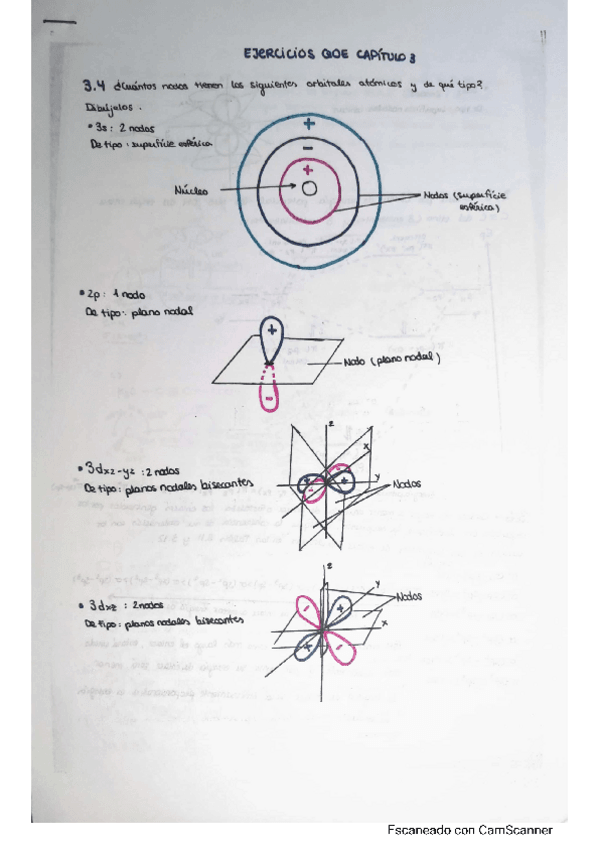 EJERCICIOS QIOE CAPÍTULO 3
3.4 ¿Cuántos nodos tienen los siguientes orbitales atómicos y de qué tipo?
Dibújalos.
• 3s: 2 nodos
De tipo: superfície esférica
+
-
+
Núcleo
Nodos (superfície
esférica)
• 2p: 1 nodo
De tipo: plano nodal
+
Nodo (plano nodal)
-
z
x
• 3dx2-y2 : 2 nodos
y
De tipo: planos nodales bisecantes
+ - - +
Nodos
z
y
• 3dxz : 2 nodos
- +
Nodos
De tipo: planos nodales bisecantes
x
+ -
Escaneado con CamScanner